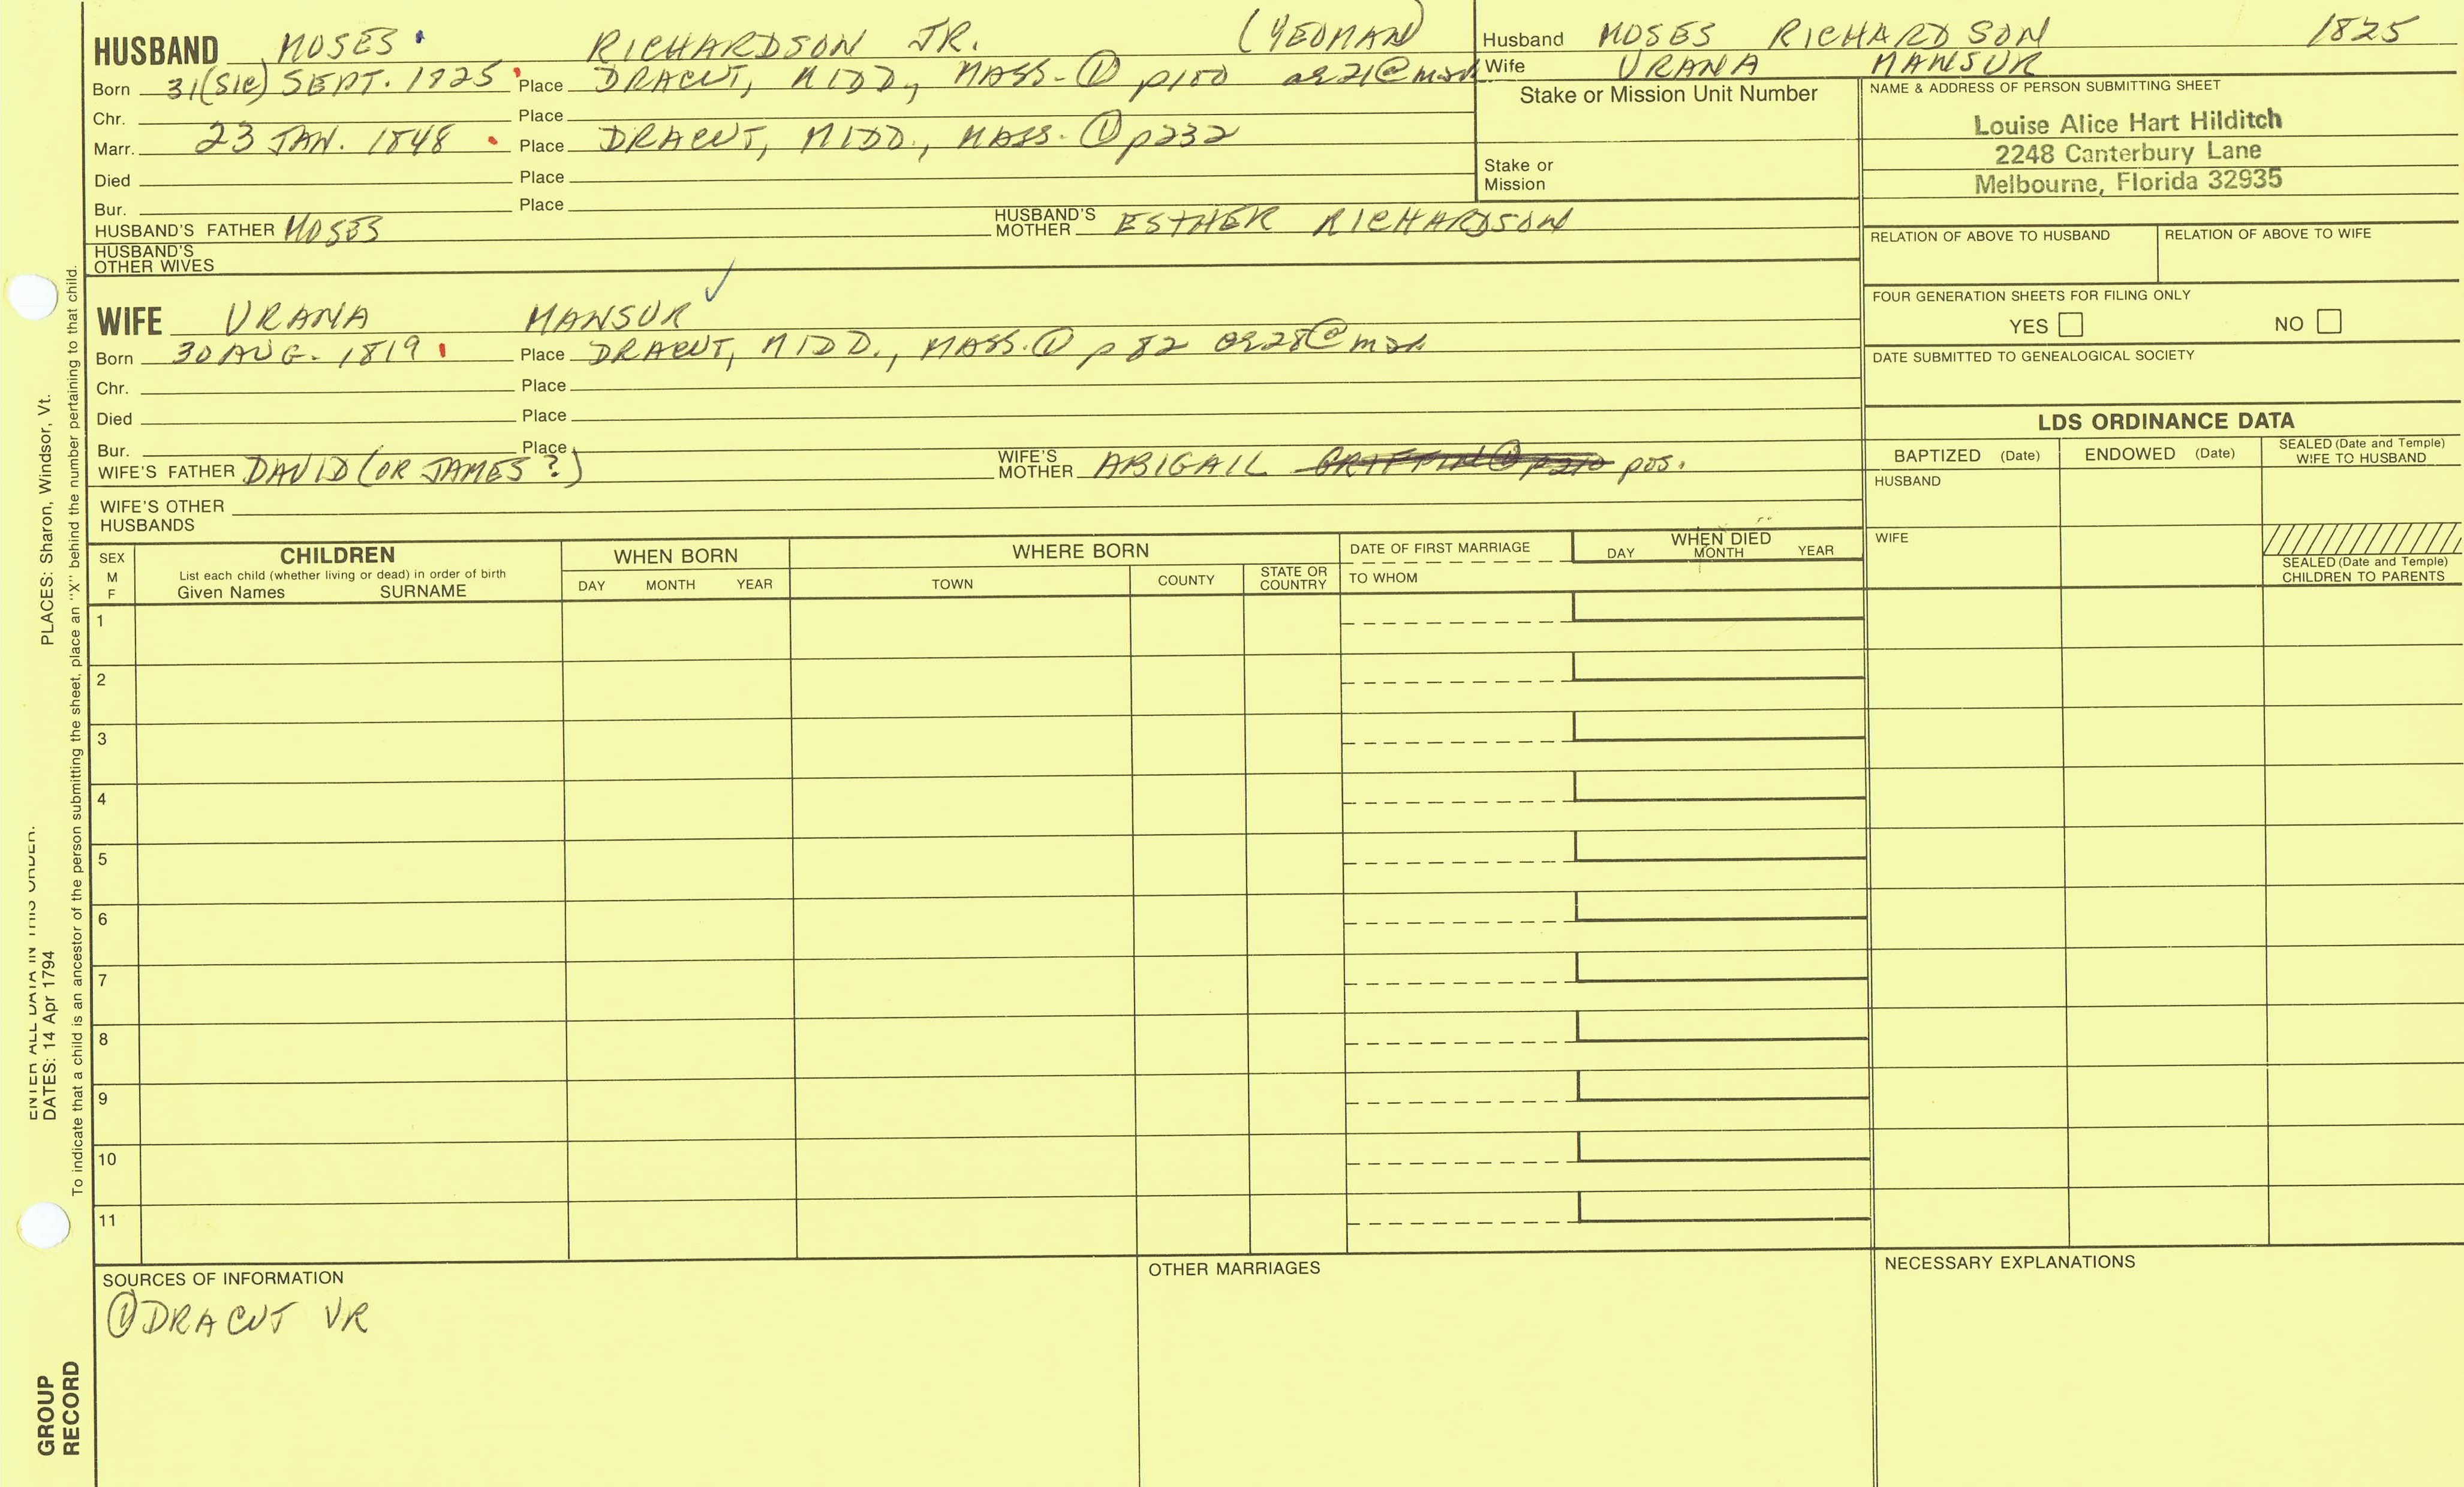 HUSBAND MOSES RICHARDSON JR. (YEOMAN)
Born 31(SIC) SEPT. 1825 Place DRACUT, MIDD, MASS. ① p100 ag 21@mar
Chr. Place
Marr. 23 JAN. 1848 Place DRACUT, MIDD., MASS. ① p232
Died Place
Bur. Place
HUSBAND'S FATHER MOSES HUSBAND'S MOTHER ESTHER RICHARDSON
HUSBAND'S OTHER WIVES
Husband MOSES RICHARDSON 1825
Wife URANA MANSUR
Stake or Mission Unit Number
Stake or
Mission
NAME & ADDRESS OF PERSON SUBMITTING SHEET
Louise Alice Hart Hilditch
2248 Canterbury Lane
Melbourne, Florida 32935
RELATION OF ABOVE TO HUSBAND RELATION OF ABOVE TO WIFE
FOUR GENERATION SHEETS FOR FILING ONLY
YES NO
DATE SUBMITTED TO GENEALOGICAL SOCIETY
WIFE URANA MANSUR
Born 30 AUG. 1819 Place DRACUT, MIDD., MASS. ① p 82 ag 28@mar
Chr. Place
Died Place
Bur. Place
WIFE'S FATHER DAVID (OR JAMES?) WIFE'S MOTHER ABIGAIL GRIFFIN ① p210 pos.
WIFE'S OTHER
HUSBANDS
LDS ORDINANCE DATA
BAPTIZED (Date) ENDOWED (Date) SEALED (Date and Temple) WIFE TO HUSBAND
HUSBAND
WIFE
SEALED (Date and Temple)
CHILDREN TO PARENTS
SEX
M
F
CHILDREN
List each child (whether living or dead) in order of birth
Given Names SURNAME
WHEN BORN
DAY MONTH YEAR
WHERE BORN
TOWN COUNTY STATE OR COUNTRY
DATE OF FIRST MARRIAGE
TO WHOM
WHEN DIED
DAY MONTH YEAR
1
2
3
4
5
6
7
8
9
10
11
SOURCES OF INFORMATION
① DRACUT VR
OTHER MARRIAGES
NECESSARY EXPLANATIONS
ENTER ALL DATA IN THIS ORDER.
DATES: 14 Apr 1794 PLACES: Sharon, Windsor, Vt.
To indicate that a child is an ancestor of the person submitting the sheet, place an "X" behind the number pertaining to that child.
GROUP
RECORD